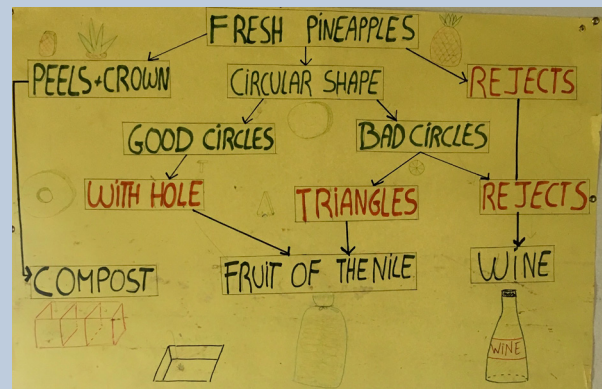 FRESH PINEAPPLES
PEELS+CROWN
CIRCULAR SHAPE
REJECTS
GOOD CIRCLES
BAD CIRCLES
WITH HOLE
TRIANGLES
REJECTS
COMPOST
FRUIT OF THE NILE
WINE
WINE